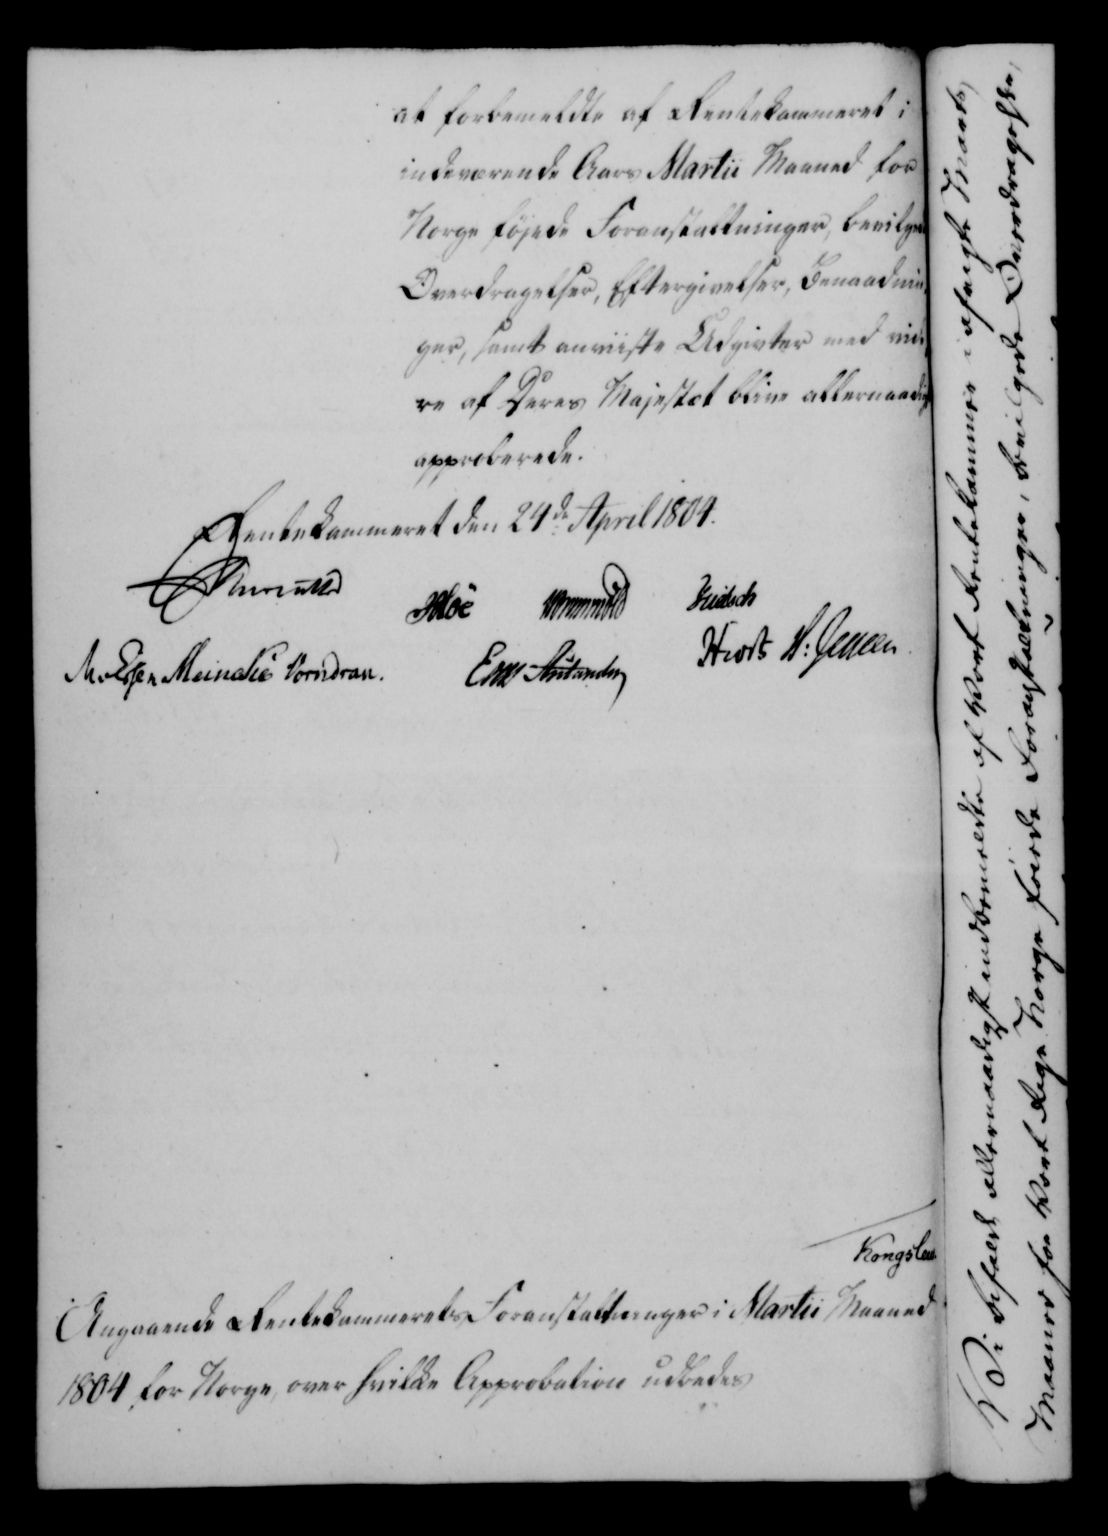 at forbemeldte af Rentekammeret i
indeværende Aars Martii Maaned for
Norge föjede Foranstaltninger, bevilgede
Overdragelser, Eftergivelser, Benaadnin-
ger, samt anviiste Udgivter med vide-
re af Deres Majestæt blive allernaadigst
approberede.
Rentekammeret den 24de April 1804.
Wormskiold
M. Essen Meincke Vorndran.
Angaaende Rentekammerets Foranstaltninger i Martii Maaned
1804 for Norge, over hvilke Approbation udbedes
Vi befale allernaadigst indbemeldte af Vort Rentekammer i afvigte Marts
Maaned for Vort Rige Norge föiede Foranstaltninger, bevilgede Overdragelser,